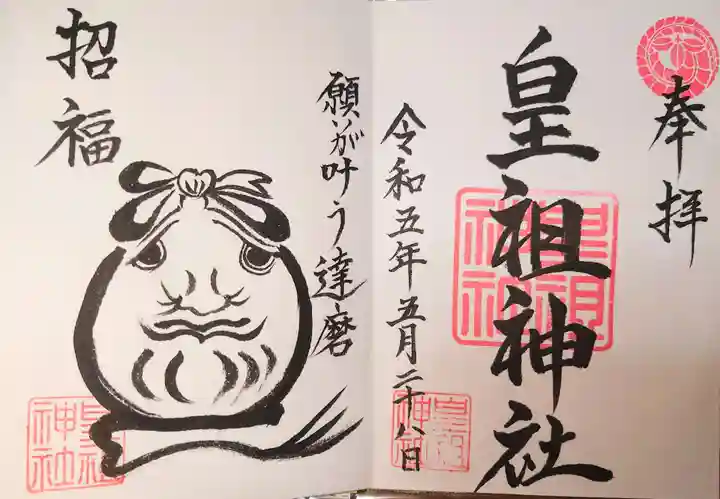 奉拝
皇祖神社
皇祖神社
令和五年五月二十八日
皇祖神社
願いが叶う達磨
招福
皇祖神社